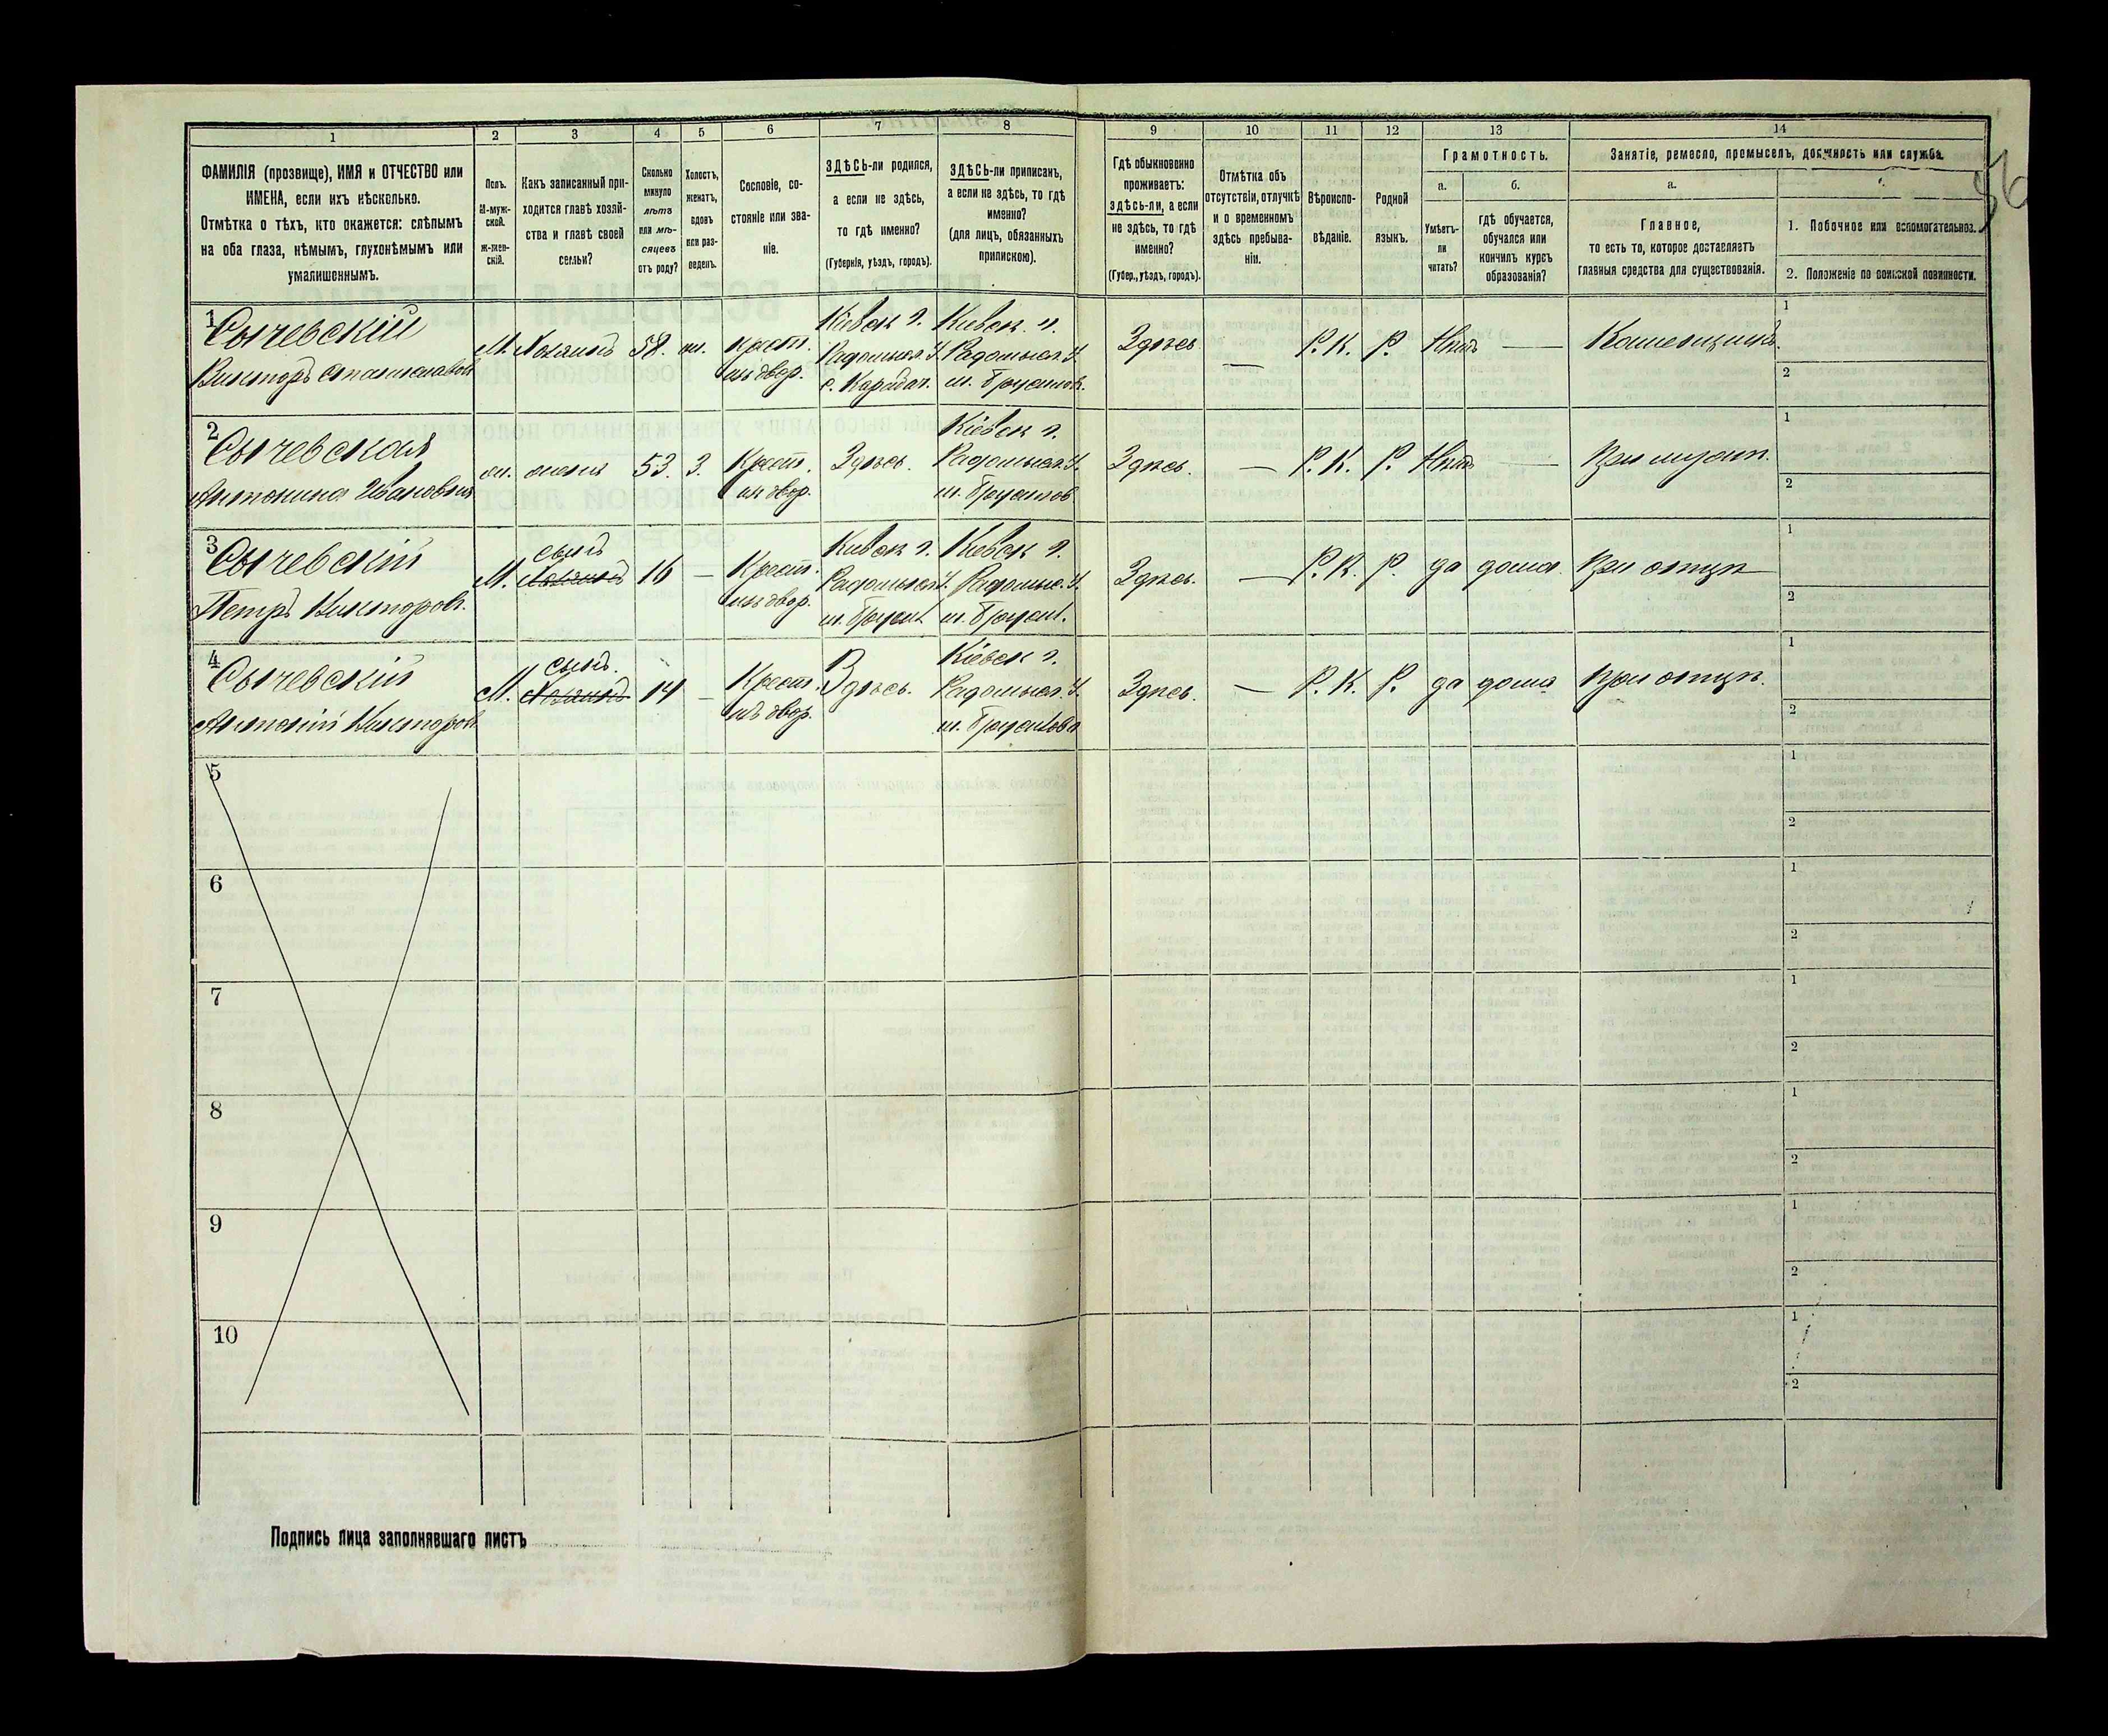 1 2 3 4 5 6 7 8 9 10 11 12 13 14
ФАМИЛІЯ (прозвище), ИМЯ и ОТЧЕСТВО или
ИМЕНА, если ихъ нѣсколько.
Отмѣтка о тѣхъ, кто окажется: слѣпымъ
на оба глаза, нѣмымъ, глухонѣмымъ или
умалишеннымъ.
Полъ.
М-муж-
ской.
Ж-жен-
скій.
Какъ записанный при-
ходится главѣ хозяй-
ства и главѣ своей
семьи?
Сколько
минуло
лѣтъ
или мѣ-
сяцевъ
отъ роду?
Холостъ,
женатъ,
вдовъ
или раз-
веденъ.
Сословіе, со-
стояніе или зва-
ніе.
ЗДѢСЬ-ли родился,
а если не здѣсь,
то гдѣ именно?
(Губернія, уѣздъ, городъ).
ЗДѢСЬ-ли приписанъ,
а если не здѣсь, то гдѣ
именно?
(для лицъ, обязанныхъ
припискою).
Гдѣ обыкновенно
проживаетъ:
здѣсь-ли, а если
не здѣсь, то гдѣ
именно?
(Губер., уѣздъ, городъ).
Отмѣтка объ
отсутствіи, отлучкѣ
и о временномъ
здѣсь пребыва-
ніи.
Вѣроиспо-
вѣданіе.
Родной
языкъ.
Грамотность.
а.
Умѣетъ-
ли
читать?
б.
гдѣ обучается,
обучался или
кончилъ курсъ
образованія?
Занятіе, ремесло, промыселъ, должность или служба.
а.
Главное,
то есть то, которое доставляетъ
главныя средства для существованія.
1. Побочное или вспомогательное.
2. Положеніе по воинской повинности.
1 Сычевскій
Викторъ Станиславов
М. Хозяинъ 58. ж. крест.
из двор.
Киевск г.
Радомысл. У.
с. Карабач.
Киевск. г.
Радомысл. У.
м. Брусилов.
Здѣсь — Р.К. Р. Нѣтъ —
1
2
2 Сычевская
Антонина Ивановна
ж. жена 53. З. Крест.
из двор.
Здѣсь.
Кіевск г.
Радомысл. У.
м. Брусилов
Здѣсь. — Р.К. Р. Нѣтъ — При муж.
1
2
3 Сычевскій
Петръ Викторов.
М. сынъ Хозяинъ 16 — Крест.
из двор.
Киевск г.
Радомысл У.
м. Брусил.
Киевск г.
Радомыс. У.
м. Брусил.
Здѣсь. — Р.К. Р. да дома. При отцѣ
1
2
4 Сычевскій
Антоній Викторов
М. сынъ. Хозяинъ 14 — Крест.
из двор.
Здѣсь.
Кіевск г.
Радомысл. У.
м. Брусилова
Здѣсь. — Р.К. Р. да дома При отцѣ.
1
2
5
1
2
6
1
2
7
1
2
8
1
2
9
1
2
10
1
2
Подпись лица заполнявшаго листъ